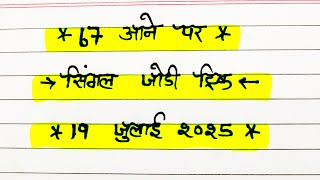 * 67 आने पर *
→ सिंगल जोडी ट्रिक ←
* 19 जुलाई २०२५ *